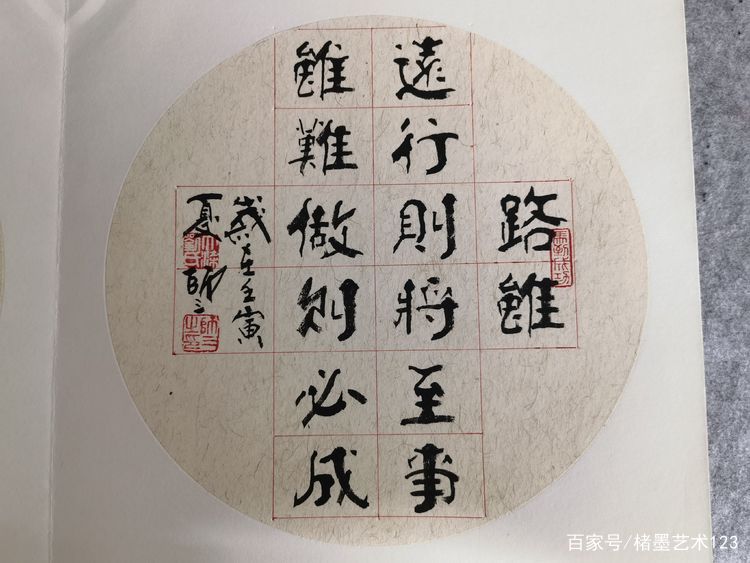 路雖
遠行則將至事
雖難做則必成
歲在壬寅
夏師三
百家号/楮墨艺术123